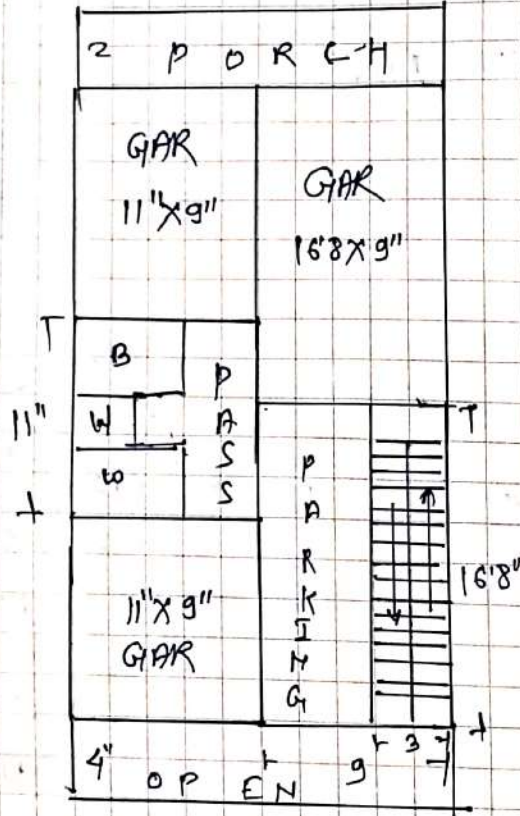 2 PORCH
GAR
11"X9"
GAR
16'8X9"
B
W
PASS
11"
PARKING
16'8"
11"X9"
GAR
4" OPEN
9
3